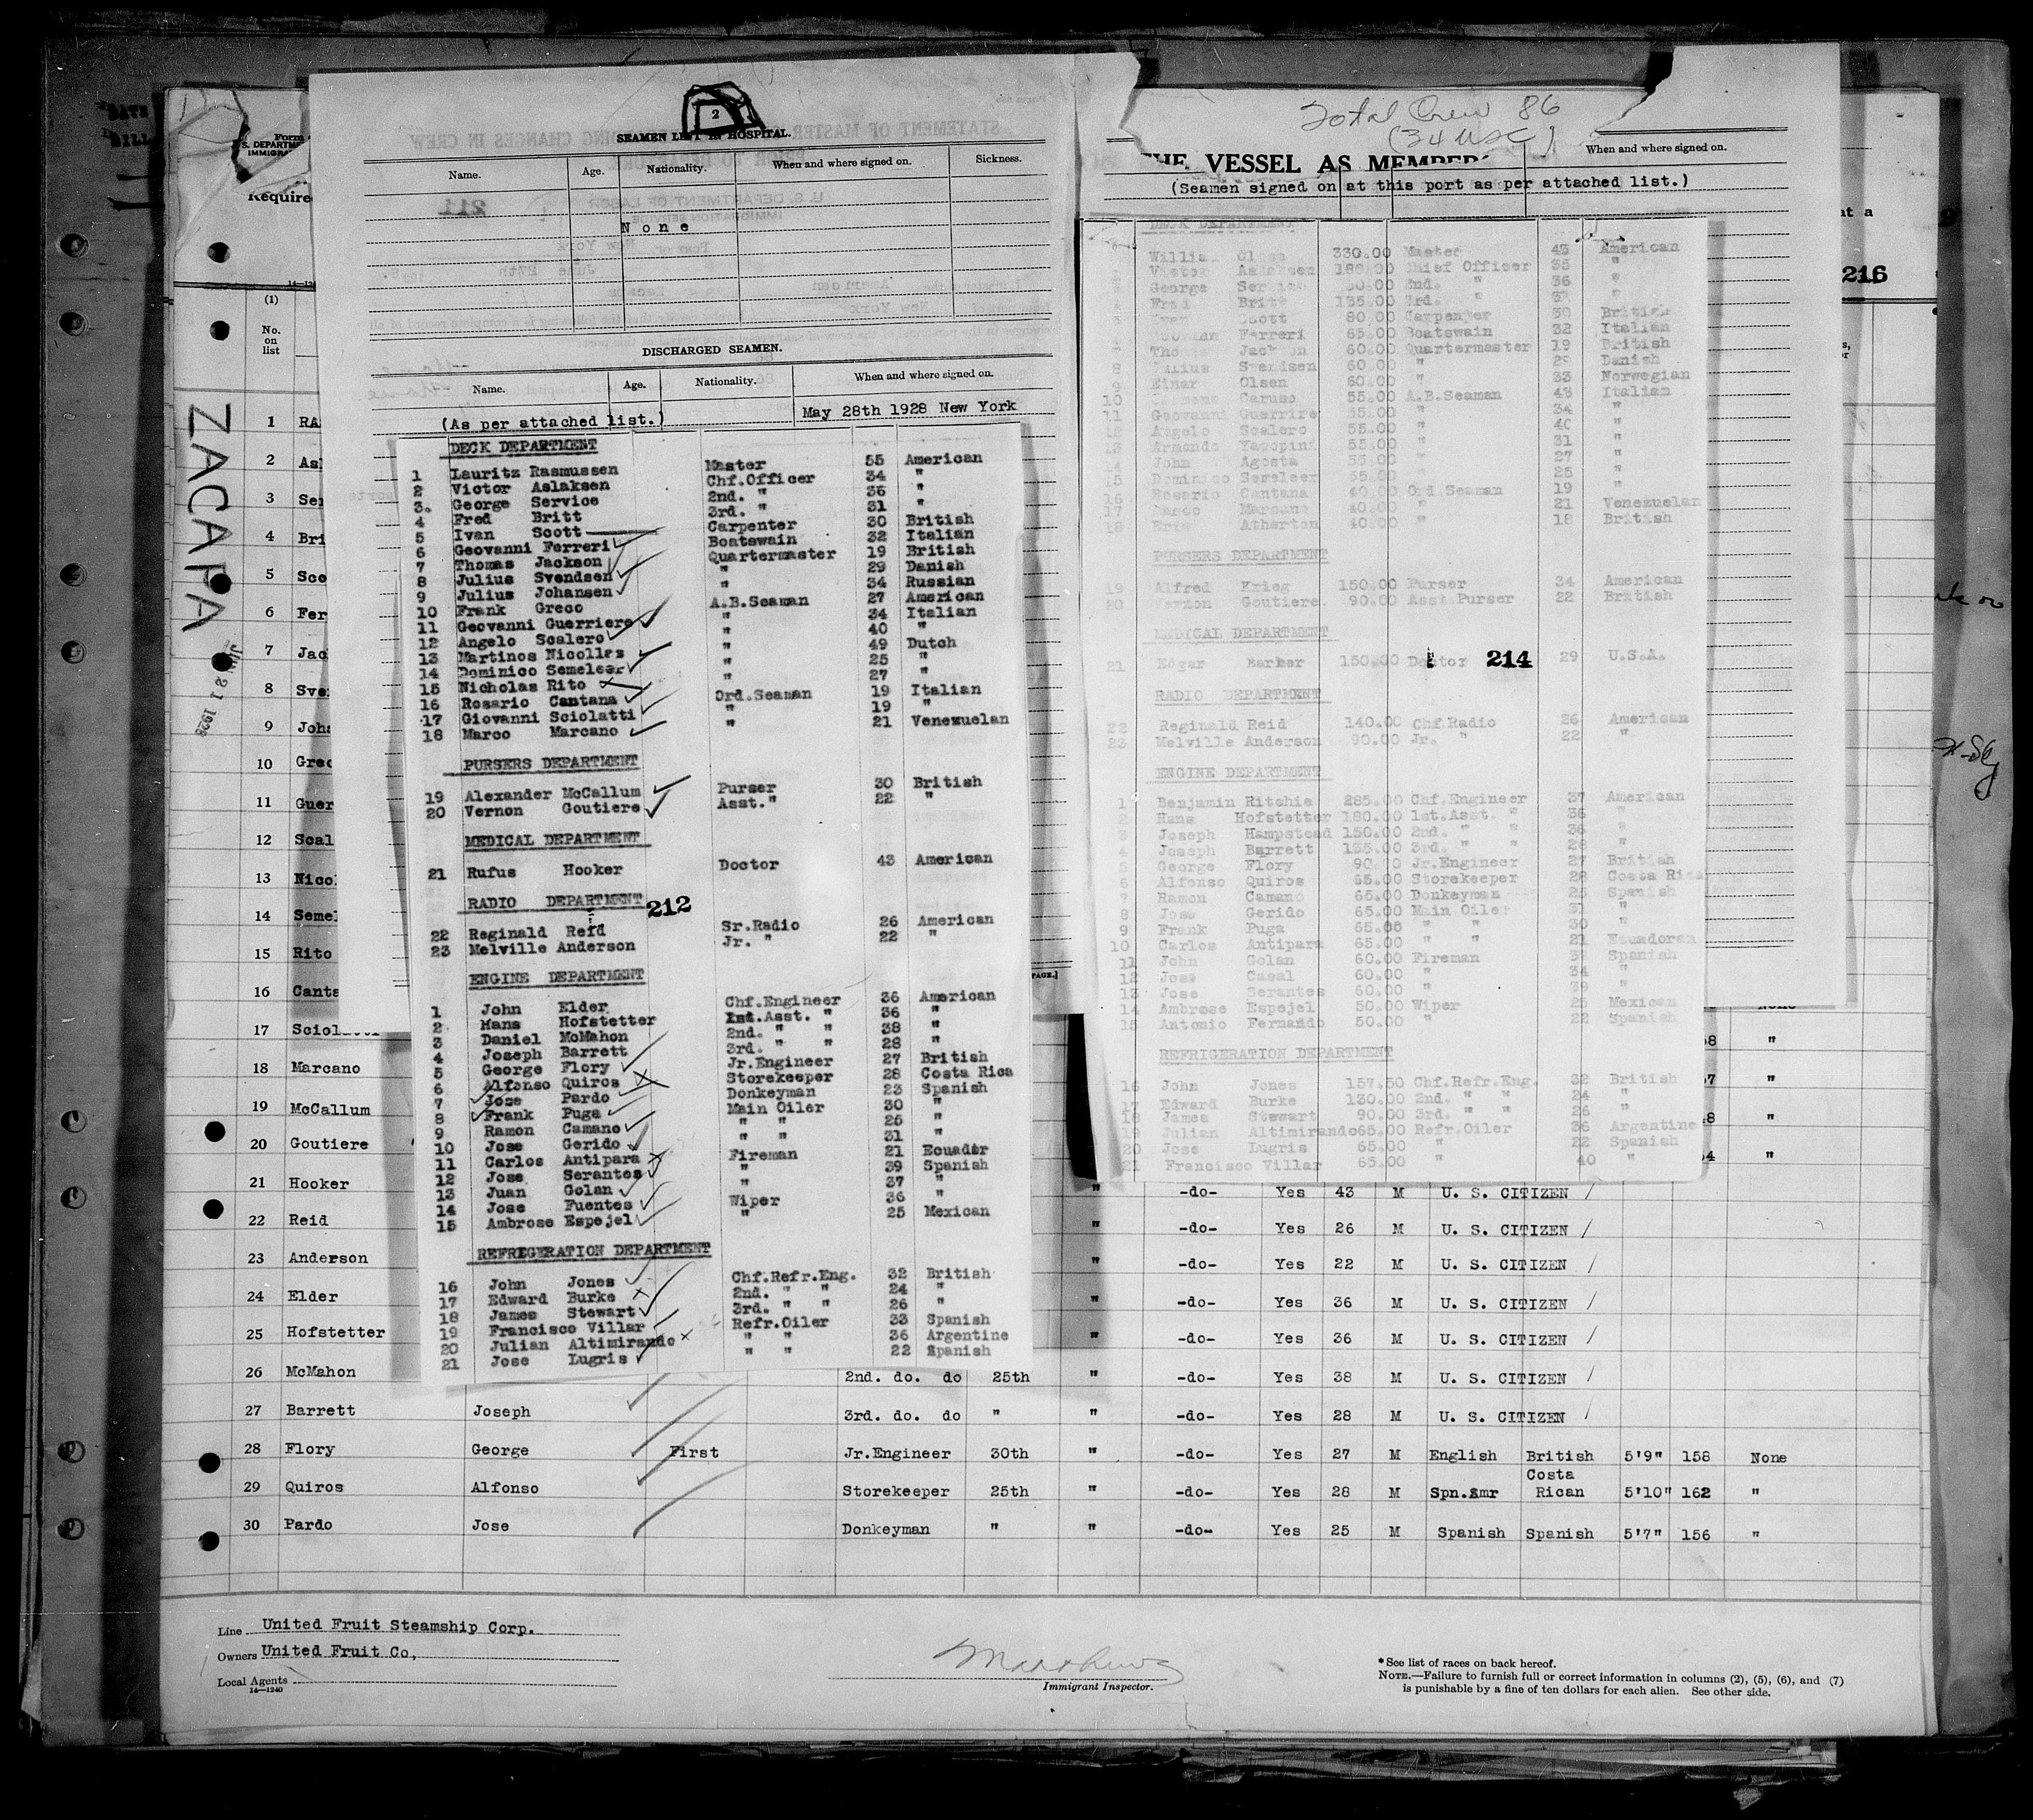 2
SEAMEN LEFT IN HOSPITAL.
Name. Age. Nationality. When and where signed on. Sickness.
211
None
DISCHARGED SEAMEN.
Name. Age. Nationality. When and where signed on.
(As per attached list.) May 28th 1928 New York
DECK DEPARTMENT
1 Lauritz Rasmussen Master 55 American
2 Victor Aslaksen Chf.Officer 34 "
3. George Service 2nd. " 36 "
4 Fred Britt 3rd. " 31 "
5 Ivan Scott Carpenter 30 British
6 Geovanni Ferreri Boatswain 32 Italian
7 Thomas Jackson Quartermaster 19 British
8 Julius Svendsen " 29 Danish
9 Julius Johansen " 34 Russian
10 Frank Greco A.B.Seaman 27 American
11 Geovanni Guerriere " 34 Italian
12 Angelo Scalero " 40 "
13 Martinos Nicollas " 49 Dutch
14 Dominico Semeleer " 25 "
15 Nicholas Rito " 27 "
16 Rosario Cantana Ord.Seaman 19 Italian
17 Giovanni Sciolatti " 19 "
18 Marco Marcano " 21 Venezuelan
PURSERS DEPARTMENT
19 Alexander McCallum Purser 30 British
20 Vernon Goutiere Asst." 22 "
MEDICAL DEPARTMENT
21 Rufus Hooker Doctor 43 American
RADIO DEPARTMENT 212
22 Reginald Reid Sr.Radio 26 American
23 Melville Anderson Jr. " 22 "
ENGINE DEPARTMENT
1 John Elder Chf.Engineer 36 American
2 Hans Hofstetter 1st.Asst. " 36 "
3 Daniel McMahon 2nd. " " 38 "
4 Joseph Barrett 3rd. " " 28 "
5 George Flory Jr.Engineer 27 British
6 Alfonso Quiros Storekeeper 28 Costa Rica
7 Jose Pardo Donkeyman 23 Spanish
8 Frank Puga Main Oiler 30 "
9 Ramon Camano " " 25 "
10 Jose Gerido " " 31 "
11 Carlos Antipara Fireman 21 Ecuador
12 Jose Serantes " 39 Spanish
13 Juan Golan " 37 "
14 Jose Fuentes Wiper 36 "
15 Ambrose Espejel " 25 Mexican
REFRIGERATION DEPARTMENT
16 John Jones Chf.Refr.Eng. 32 British
17 Edward Burke 2nd. " " 24 "
18 James Stewart 3rd. " " 26 "
19 Francisco Villar Refr.Oiler 33 Spanish
20 Julian Altimirando " " 36 Argentine
21 Jose Lugris " " 22 Spanish
Total Crew 86
(34 USC)
When and where signed on.
THE VESSEL AS MEMBERS
(Seamen signed on at this port as per attached list.)
DECK DEPARTMENT
William Olsen 330.00 Master 43 American
Victor Aslaksen Chief Officer 35 "
George 2nd. " 36 "
Fred 135.00 3rd. "
Scott 80.00 Carpenter 30 British
Ferreri 65.00 Boatswain 32 Italian
Jackson 60.00 Quartermaster 19 British
8 Julius Svendsen 60.00 " 29 Danish
9 Einar Olsen 60.00 " 33 Norwegian
10 Caruso 55.00 A.B.Seaman 43 Italian
11 Geovanni Guerrire 55.00 " 34 "
12 Angelo Scalero 55.00 " 40 "
13 Armando 55.00 " 31 "
14 John Agosta 55.00 " 27 "
15 Dominico 55.00 " 25 "
16 Rosario Cantana 40.00 Ord.Seaman 19 "
17 Marco Marcano 40.00 " 21 Venezuelan
18 Eric Atherton 40.00 " 18 British
PURSERS DEPARTMENT
19 Alfred Krieg 150.00 Purser 34 American
20 Vernon Goutiere 90.00 Asst.Purser 22 British
MEDICAL DEPARTMENT
21 Edgar Barker 150.00 Doctor 214 29 U.S.A.
RADIO DEPARTMENT
22 Reginald Reid 140.00 Chf.Radio 26 American
23 Melville Anderson 90.00 Jr. " 22 "
ENGINE DEPARTMENT
1 Benjamin Ritchie 285.00 Chf.Engineer 37 American
2 Hans Hofstetter 180.00 1st.Asst. " 36 "
3 Joseph Hampstead 150.00 2nd. " " 36 "
4 Joseph Barrett 135.00 3rd. " " 28 "
5 George Flory 90.00 Jr.Engineer 27 British
6 Alfonso Quiros 65.00 Storekeeper 28 Costa Rica
7 Ramon Camano 65.00 Donkeyman 25 Spanish
8 Jose Gerido 65.00 Main Oiler 31 "
9 Frank Puga 65.00 " " 30 "
10 Carlos Antipara 65.00 " " 21 Ecuadoran
11 John Golan 60.00 Fireman 39 Spanish
12 Jose Casal 60.00 " 34 "
13 Jose Serantes 60.00 " 39 "
14 Ambrose Espejel 50.00 Wiper 25 Mexican
15 Antonio Fernando 50.00 " 22 Spanish
REFRIGERATION DEPARTMENT
16 John Jones 157.50 Chf.Refr.Eng. 32 British
17 Edward Burke 130.00 2nd. " " 24 "
18 James Stewart 90.00 3rd. " " 26 "
19 Julian Altimirando 65.00 Refr.Oiler 36 Argentine
20 Jose Lugris 65.00 " 22 Spanish
21 Francisco Villar 65.00 " 40 "
216
Form
S. DEPARTME
IMMIGRA
Require
(1)
No. on list
ZACAPA
JUN 21 1928
1 RA
2 Asl
3 Ser
4 Bri
5 Sco
6 Fer
7 Jac
8 Sve
9 Joha
10 Grec
11 Guer
12 Scal
13 Nicol
14 Semel
15 Rito
16 Canta
17 Sciolatti
18 Marcano "
19 McCallum "
20 Goutiere "
21 Hooker " -do- Yes 43 M U. S. CITIZEN
22 Reid " -do- Yes 26 M U. S. CITIZEN
23 Anderson " -do- Yes 22 M U. S. CITIZEN
24 Elder " -do- Yes 36 M U. S. CITIZEN
25 Hofstetter " -do- Yes 36 M U. S. CITIZEN
26 McMahon 2nd. do. do 25th " -do- Yes 38 M U. S. CITIZEN
27 Barrett Joseph 3rd. do. do " " -do- Yes 28 M U. S. CITIZEN
28 Flory George First Jr.Engineer 30th " -do- Yes 27 M English British 5'9" 158 None
29 Quiros Alfonso Storekeeper 25th " -do- Yes 28 M Spn.Amr Costa Rican 5'10" 162 "
30 Pardo Jose Donkeyman " " -do- Yes 25 M Spanish Spanish 5'7" 156 "
Line United Fruit Steamship Corp.
Owners United Fruit Co,
Local Agents
14—1240
Matthews
Immigrant Inspector.
* See list of races on back hereof.
NOTE.—Failure to furnish full or correct information in columns (2), (5), (6), and (7)
is punishable by a fine of ten dollars for each alien. See other side.